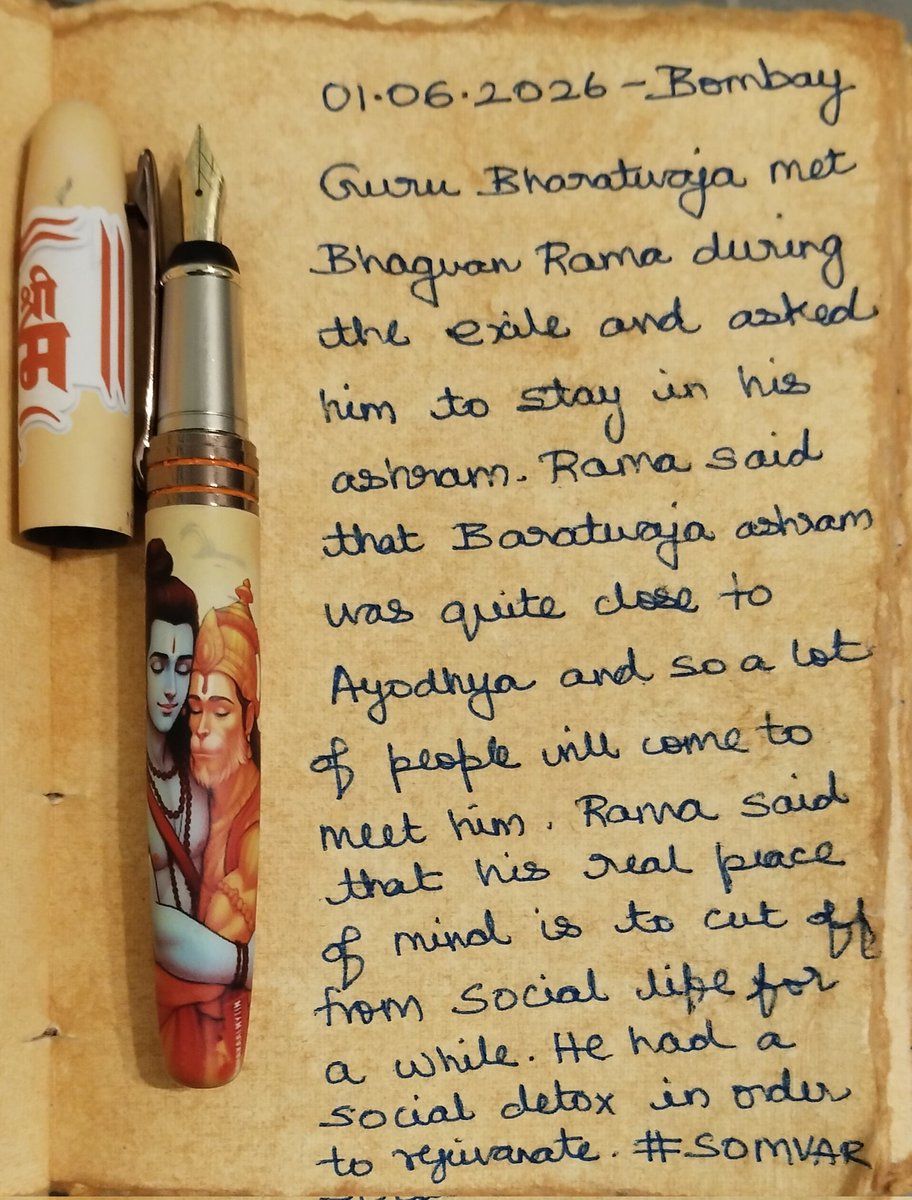 01.06.2026 - Bombay
Guru Bharatwaja met
Bhagwan Rama during
the exile and asked
him to stay in his
ashram. Rama said
that Baratwaja ashram
was quite close to
Ayodhya and so a lot
of people will come to
meet him. Rama said
that his real peace
of mind is to cut off
from social life for
a while. He had a
social detox in order
to rejuvanate. #SOMVAR
श्री
म